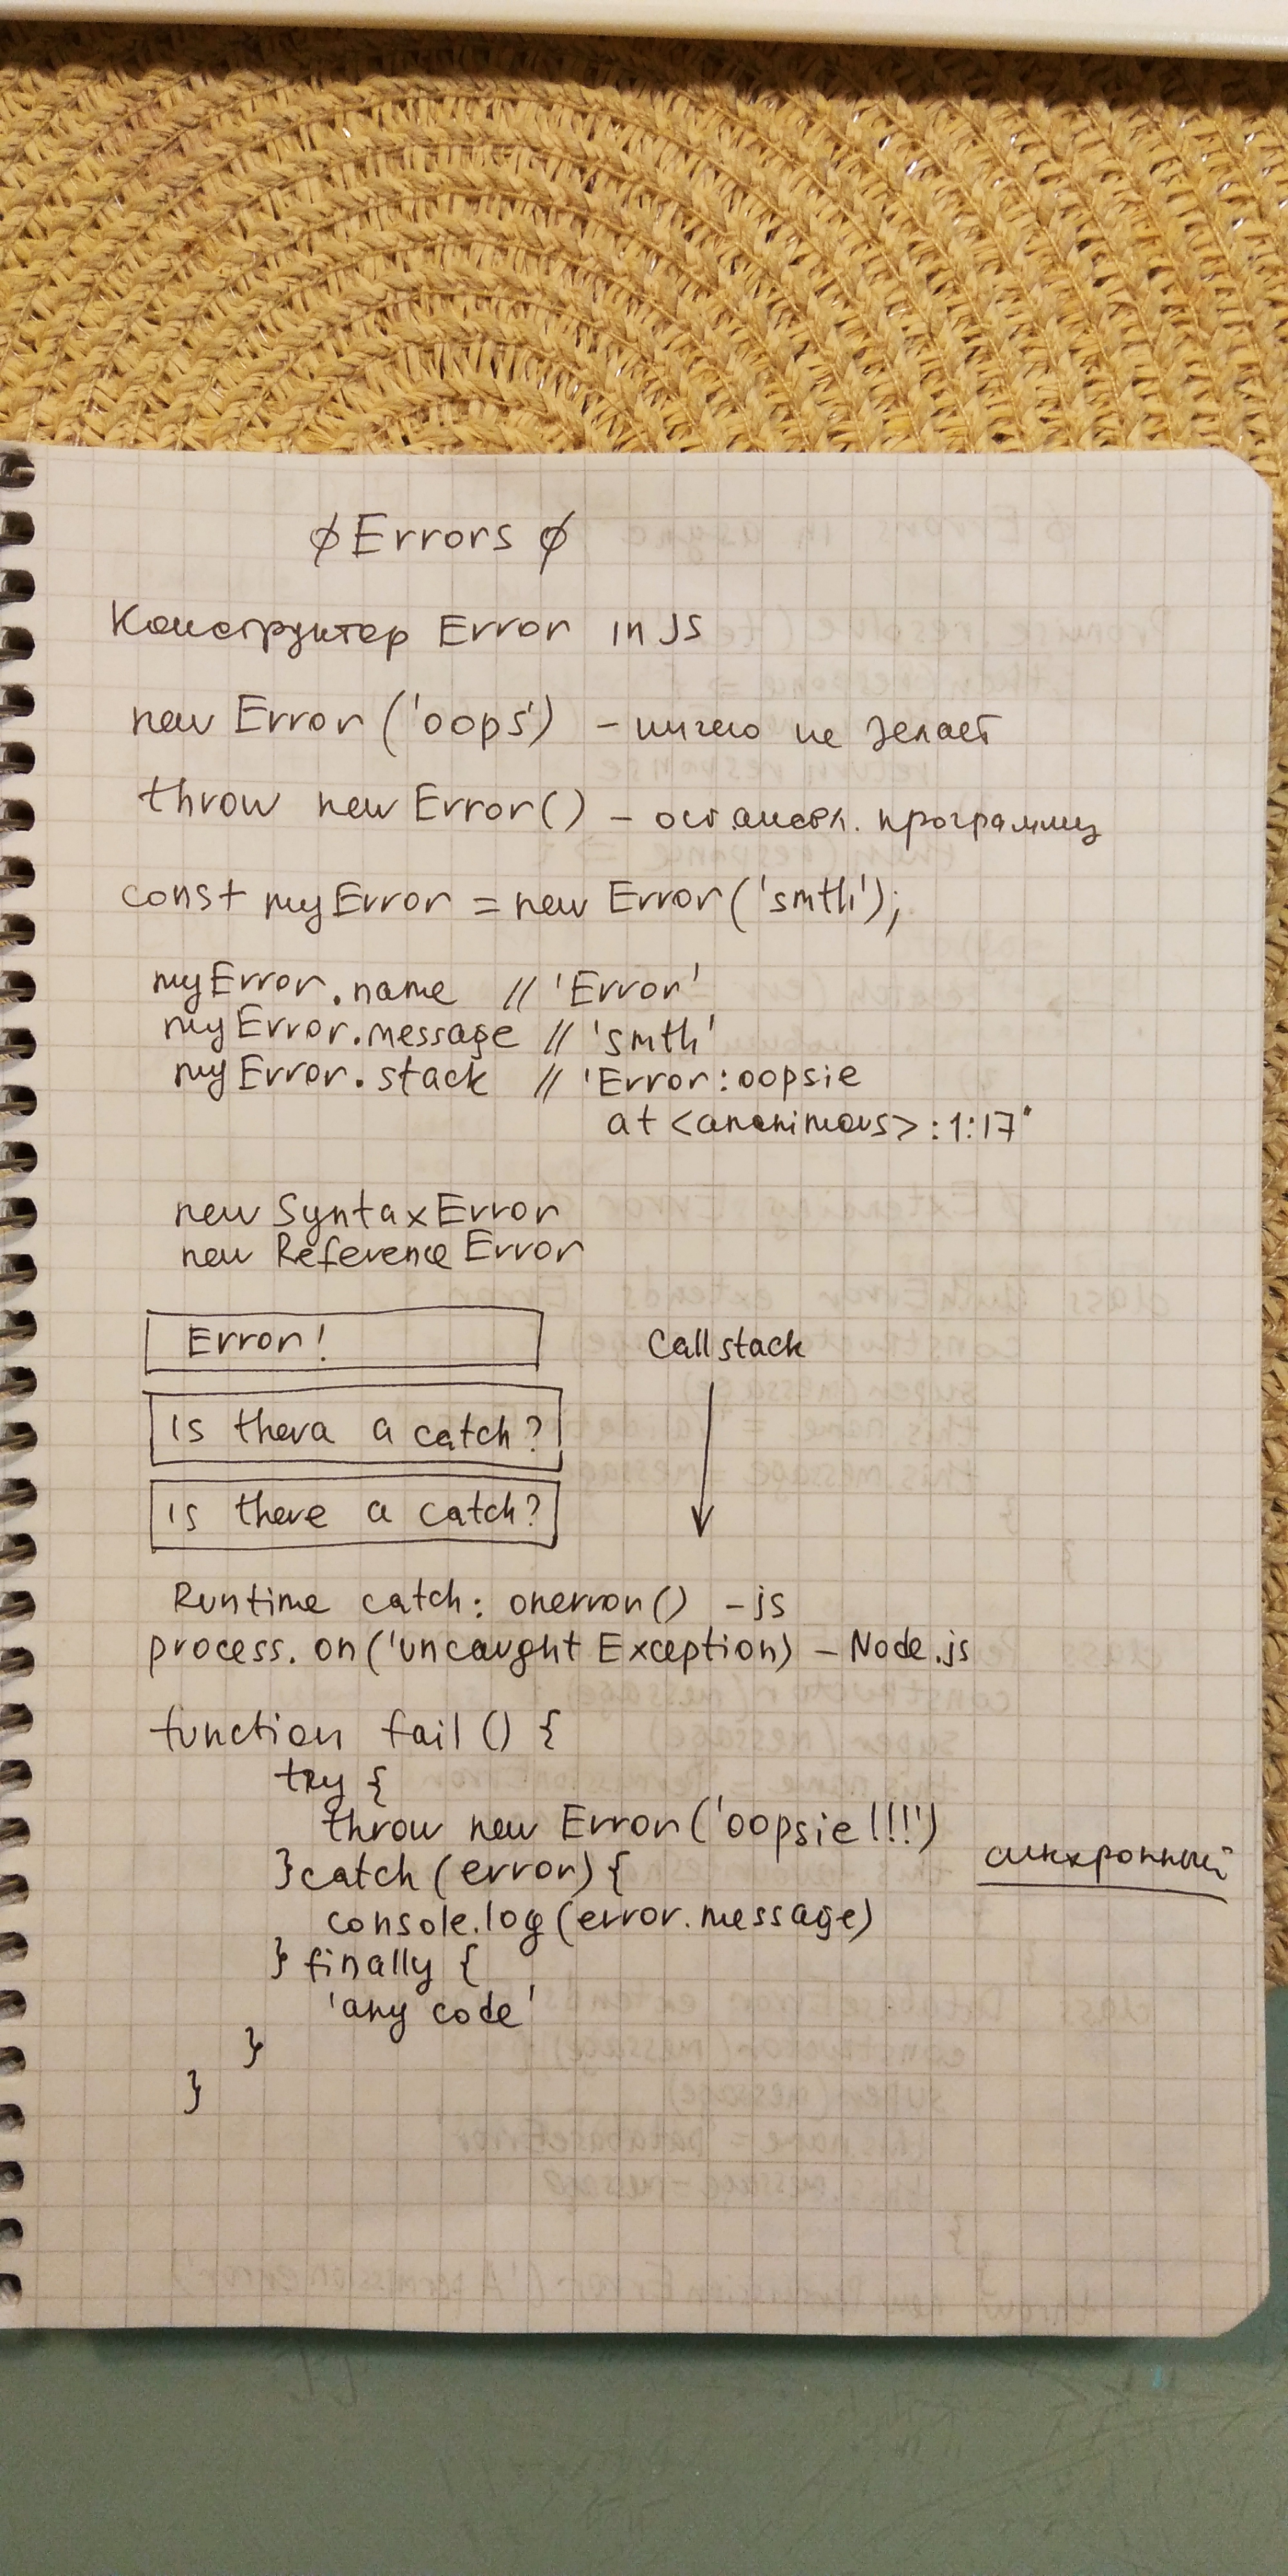 ∅ Errors ∅
Конструктор Error in JS
new Error ('oops') - ничего не делает
throw new Error() - останавл. программу
const myError = new Error('smth');
myError.name // 'Error'
myError.message // 'smth'
myError.stack // 'Error:oopsie
at <anonimous>:1:17'
new SyntaxError
new ReferenceError
Error!
Call stack
is thera a catch?
is there a catch?
Runtime catch: onerror() - js
process.on('uncaught Exception) - Node.js
function fail () {
try {
throw new Error('oopsie!!!')
}catch (error) {
синхронный
console.log(error.message)
} finally {
'any code'
}
}